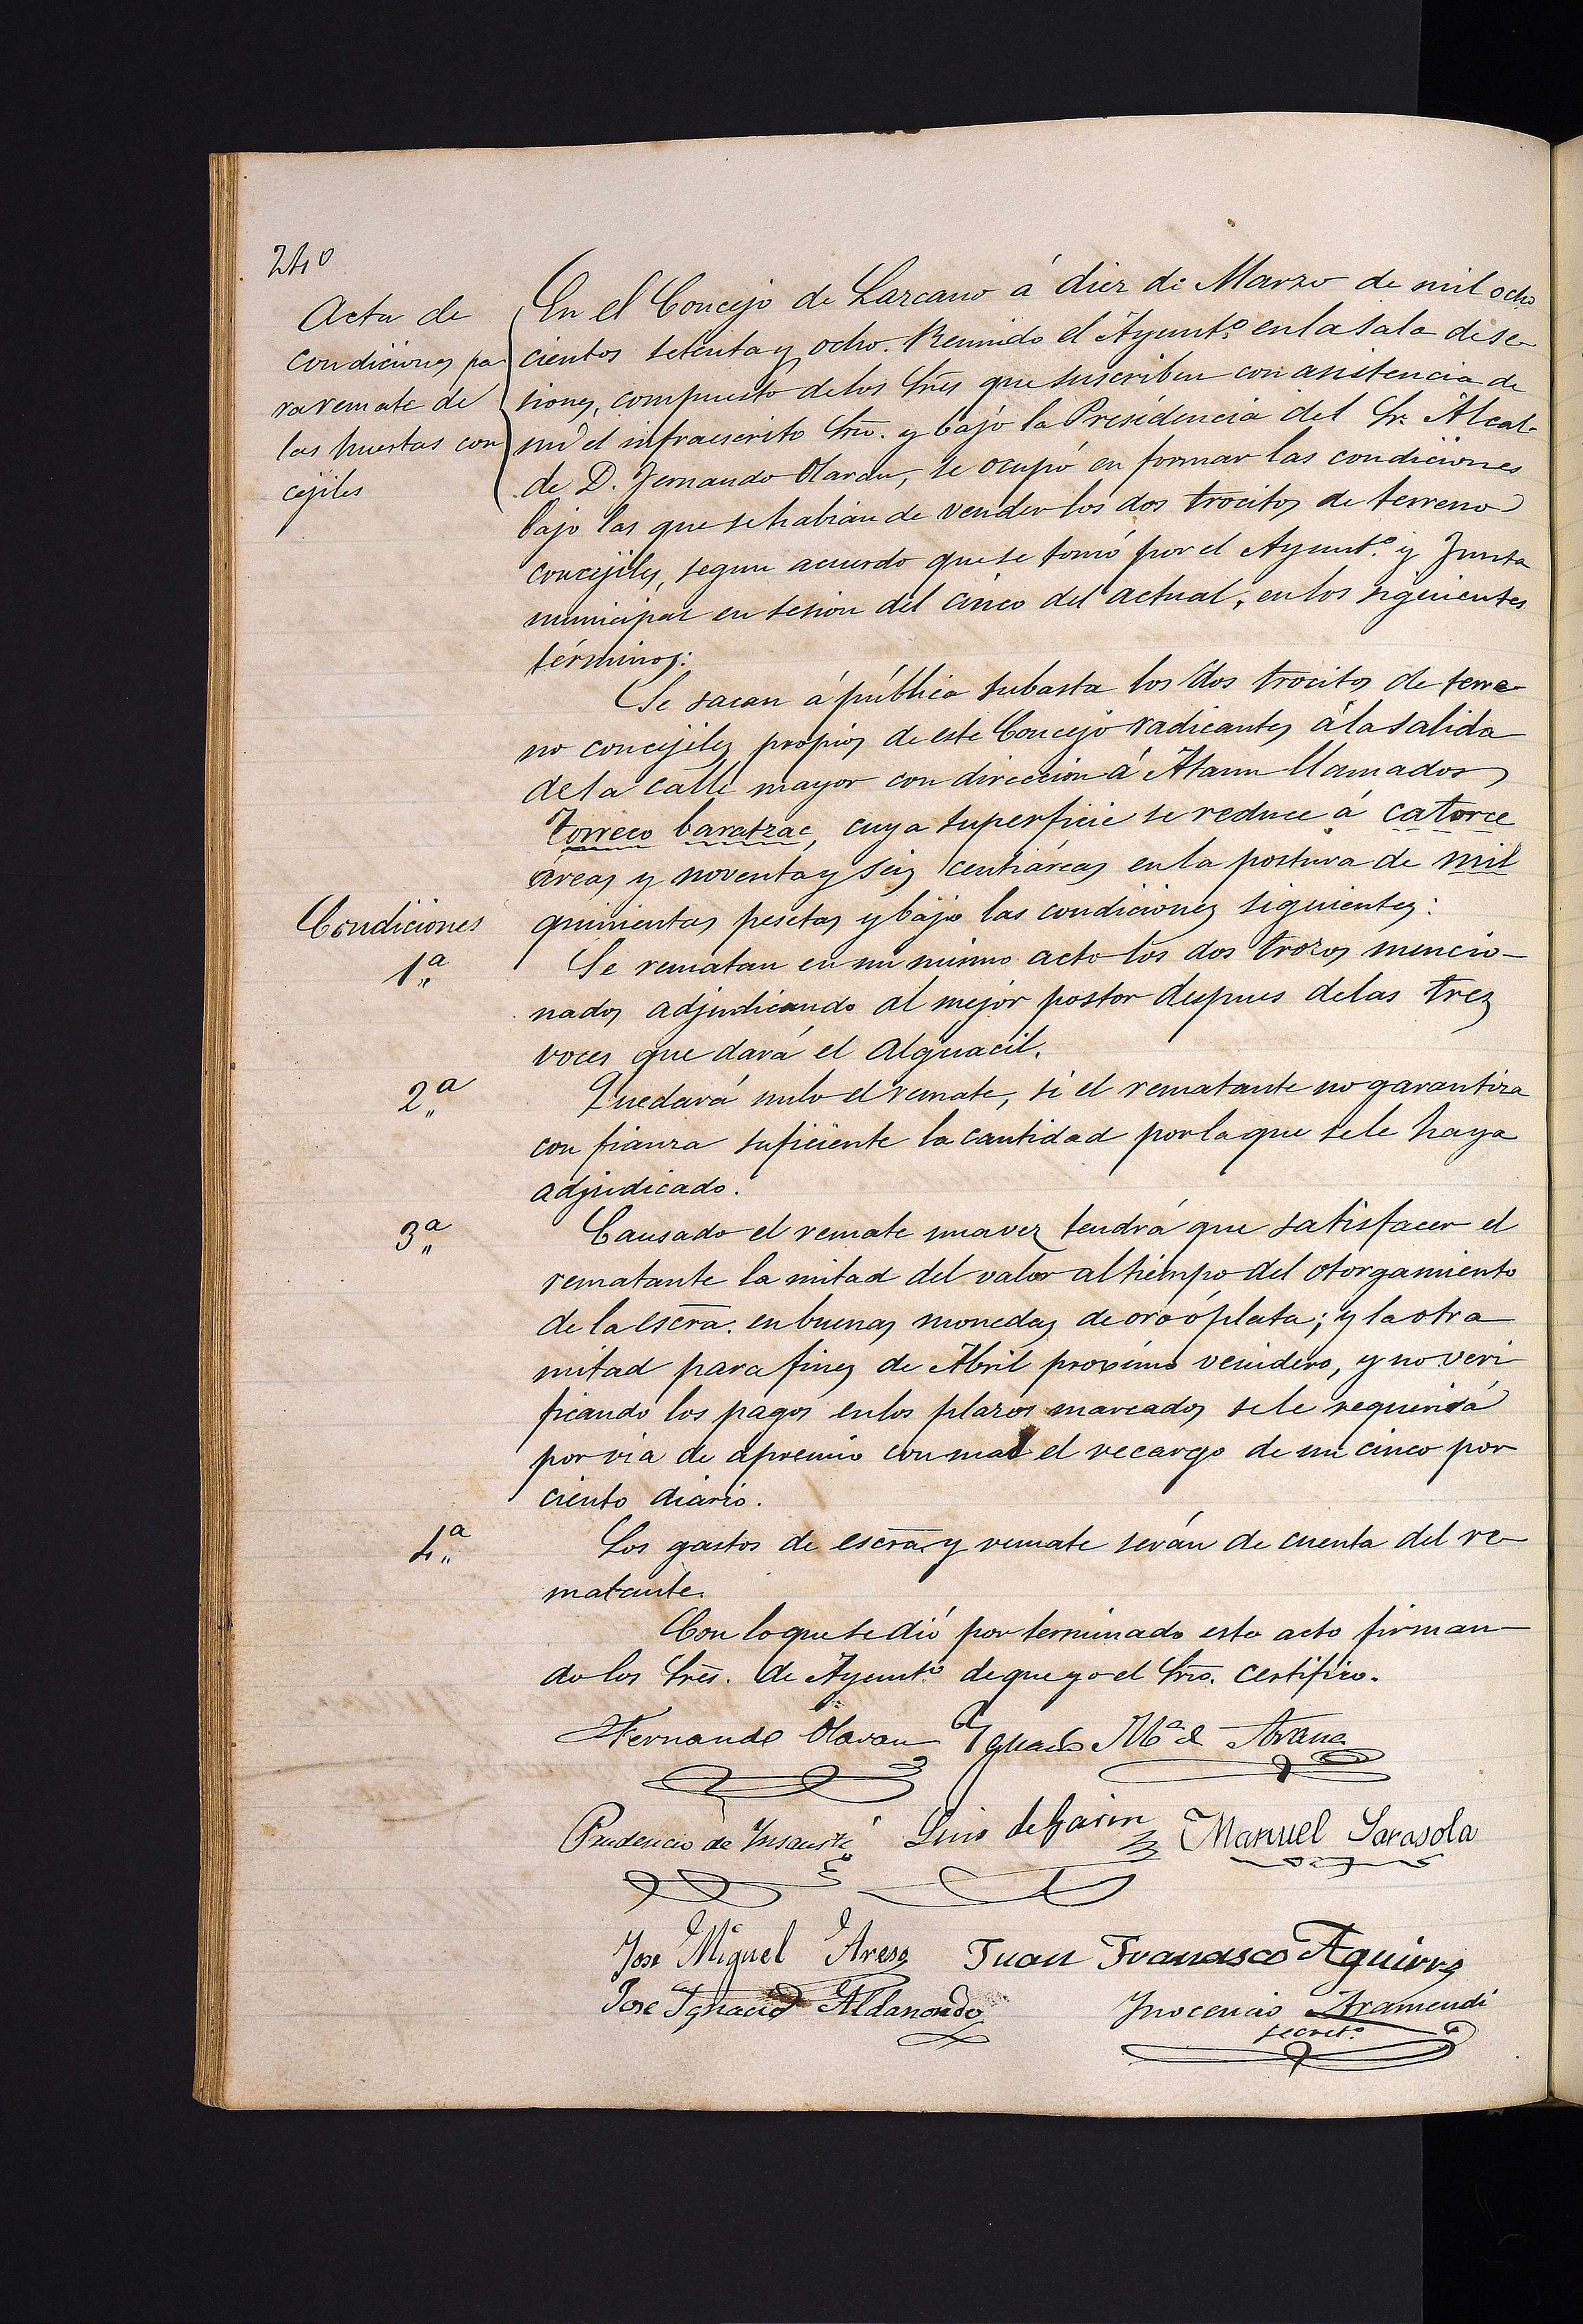 240
Acta de
condiciones pa
ra remate de
las huertas con
cejiles
En el Concejo de Lazcano á diez de Marzo de mil ocho
cientos setenta y ocho. Reunido el Ayunt.º en la sala de se-
siones, compuesto de los Srēs que suscriben con asistencia de
mi el infraescrito Srīo. y bajo la Presidencia del Sr. Alcal-
de D. Fernando Olaran, se ocupó en formar las condiciones
bajo las que se habian de vender los dos trocitos de terreno
concejiles, segun acuerdo que se tomó por el Ayunt.º y Junta
municipal en sesion del cinco del actual, en los siguientes
términos:
Se sacan á pública subasta los dos trocitos de terre-
no concejiles propios de este Concejo radicantes á la salida
de la calle mayor con direccion á Ataun llamados
Torreco baratzac, cuya superficie se reduce á catorce
áreas y noventa y seis centiáreas en la postura de mil
quinientas pesetas y bajo las condiciones siguientes:
Condiciones
1.ª Se rematan en un mismo acto los dos trozos mencio-
nados adjudicando al mejor postor despues de las tres
voces que dará el Alguacil.
2.ª Quedará nulo el remate, si el rematante no garantiza
con fianza suficiente la cantidad por la que se le haya
adjudicado.
3.ª Causado el remate una vez tendrá que satisfacer el
rematante la mitad del valor al tiempo del otorgamiento
de la escrā. en buenas monedas de oro ó plata; y la otra
mitad para fines de Abril proximo venidero, y no veri
ficando los pagos en los plazos marcados se le requerirá
por via de apremio con mas el recargo de un cinco por
ciento diario.
4.ª Los gastos de escrā y remate serán de cuenta del re-
matante.
Con lo que se dió por terminado este acto firman-
do los Srēs. de Ayunt.º de que yo el Srīo. certifico.
Fernando Olaran Ignacio M.ª de Arana
Prudencio de Insausti Luis de Garin Manuel Sarasola
Jose Miguel Areso Juan Francisco Aguirre
Jose Ignacio Aldanondo Inocencio Aramendi
secret.º